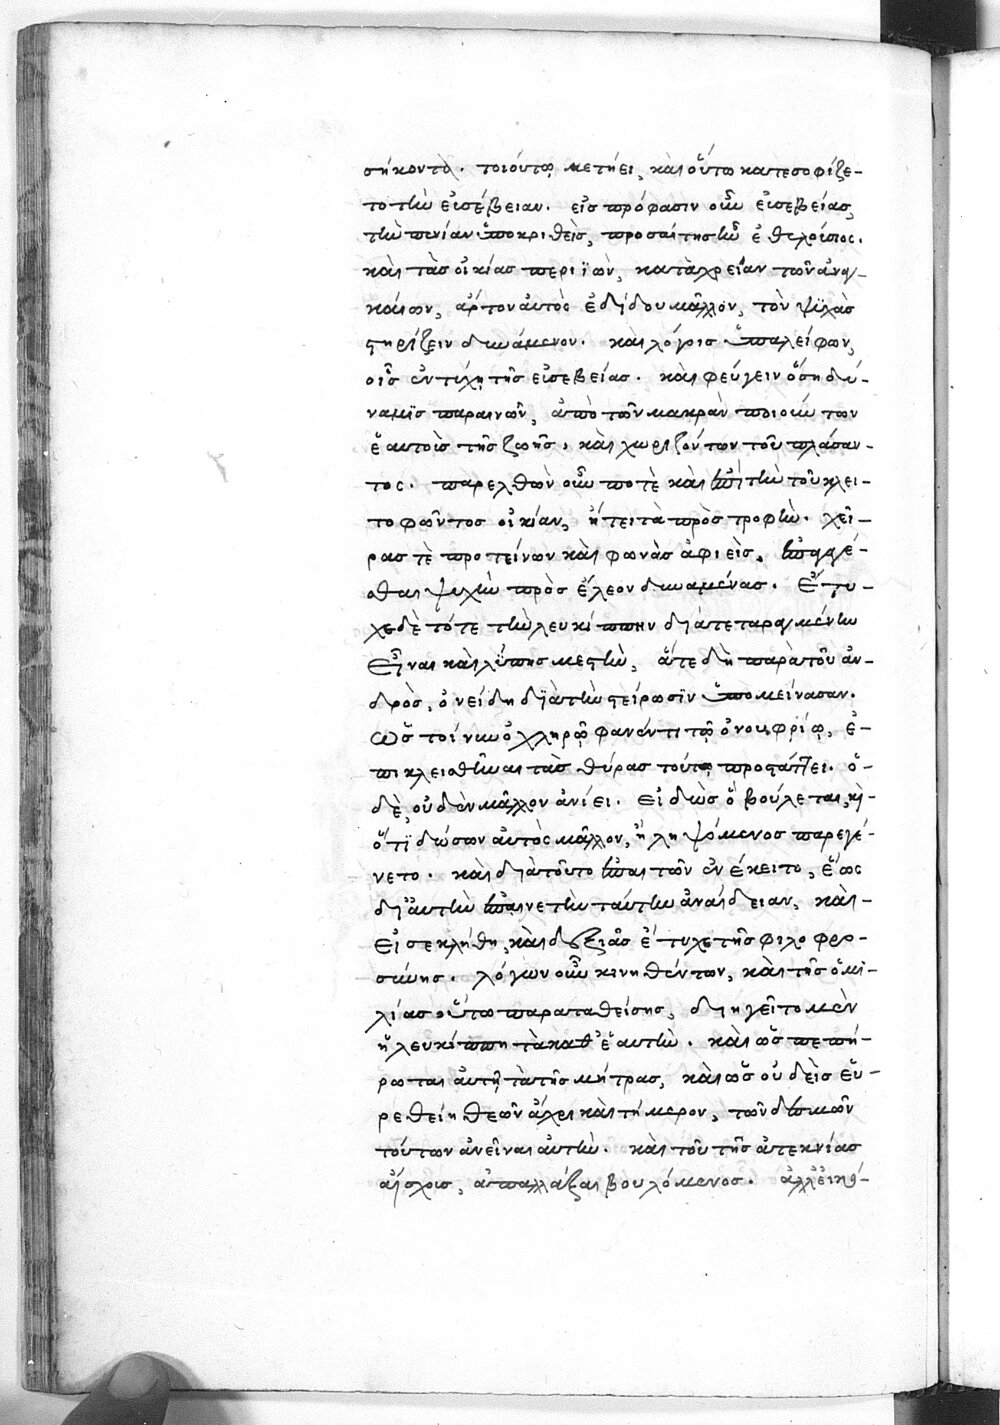 σήκοντο. τοιούτῳ μετήει, καὶ οὕτω κατεσοφίζε-
το τὴν εὐσέβειαν. εἰς πρόφασιν οὖν εὐσεβείας,
τὴν πενίαν ὑποκριθεὶς, προσαίτης ἦν ἐθελούσιος.
καὶ τὰς οἰκίας περιϊὼν, κατὰ χρείαν τῶν ἀναγ-
καίων, ἄρτον αὐτὸς ἐδίδου μᾶλλον, τὸν ψυχὰς
στηρίζειν δυνάμενον. καὶ λόγοις ὑπαλείφων,
οἷς ἐντύχῃ τῆς εὐσεβείας. καὶ φεύγειν ὅση δύ-
ναμις παραινῶν, ἀπὸ τῶν μακρὰν ποιούντων
ἑαυτοὺς τῆς ζωῆς, καὶ χωριζόντων τοῦ πλάσαν-
τος. παρελθὼν οὖν ποτὲ καὶ ἐπὶ τὴν τοῦ κλει-
τοφῶντος οἰκίαν, ᾔτει τὰ πρὸς τροφὴν. χεῖ-
ρας τὲ προτείνων καὶ φωνὰς ἀφιεὶς, ἐπαγαγέ-
σθαι ψυχὴν πρὸς ἔλεον δυναμένας. ἔτυ-
χε δὲ τότε τὴν λευκίππην διατεταραγμένην
εἶναι καὶ λύπης μεστὴν, ἅτε δὴ παρὰ τοῦ ἀν-
δρὸς, ὀνείδη διὰ τὴν στείρωσιν ὑπομείνασαν.
ὡς τοίνυν ὀχληρῷ φανέντι τῷ ὀνουφρίῳ, ἐ-
πικλεισθῆναι τὰς θύρας τούτῳ προστάττει. ὁ-
δὲ, οὐδὲν μᾶλλον ἀνίει. εἰδὼς ὃ βούλεται, καὶ
ὅτι δώσων αὐτὸς μᾶλλον, ἢ ληψόμενος παρεγέ-
νετο. καὶ διὰ τοῦτο ἐπαιτῶν ἐνέκειτο, ἕως
δι' αὐτὴν ἐπαινετὴν ταύτην ἀναίδειαν, καὶ-
εἰσεκλήθη, καὶ δεξιᾶς ἔτυχε τῆς φιλοφρο-
σύνης. λόγων οὖν κινηθέντων, καὶ τῆς ὁμι-
λίας οὕτω παραταθείσης, διηγεῖτο μὲν
ἡ λευκίππη τὰ καθ' ἑαυτὴν. καὶ ὡς πεπή-
ρωται αὐτῇ τὰ τῆς μήτρας, καὶ ὡς οὐδεὶς εὑ-
ρεθείη θεῶν ἄχρι καὶ τήμερον, τῶν δεσμῶν
τούτων ἀνεῖναι αὐτὴν. καὶ τοῦ τῆς ἀτεκνίας
αἴσχους, ἀπαλλάξαι βουλόμενος. ἀλλ' εἰκῆ-